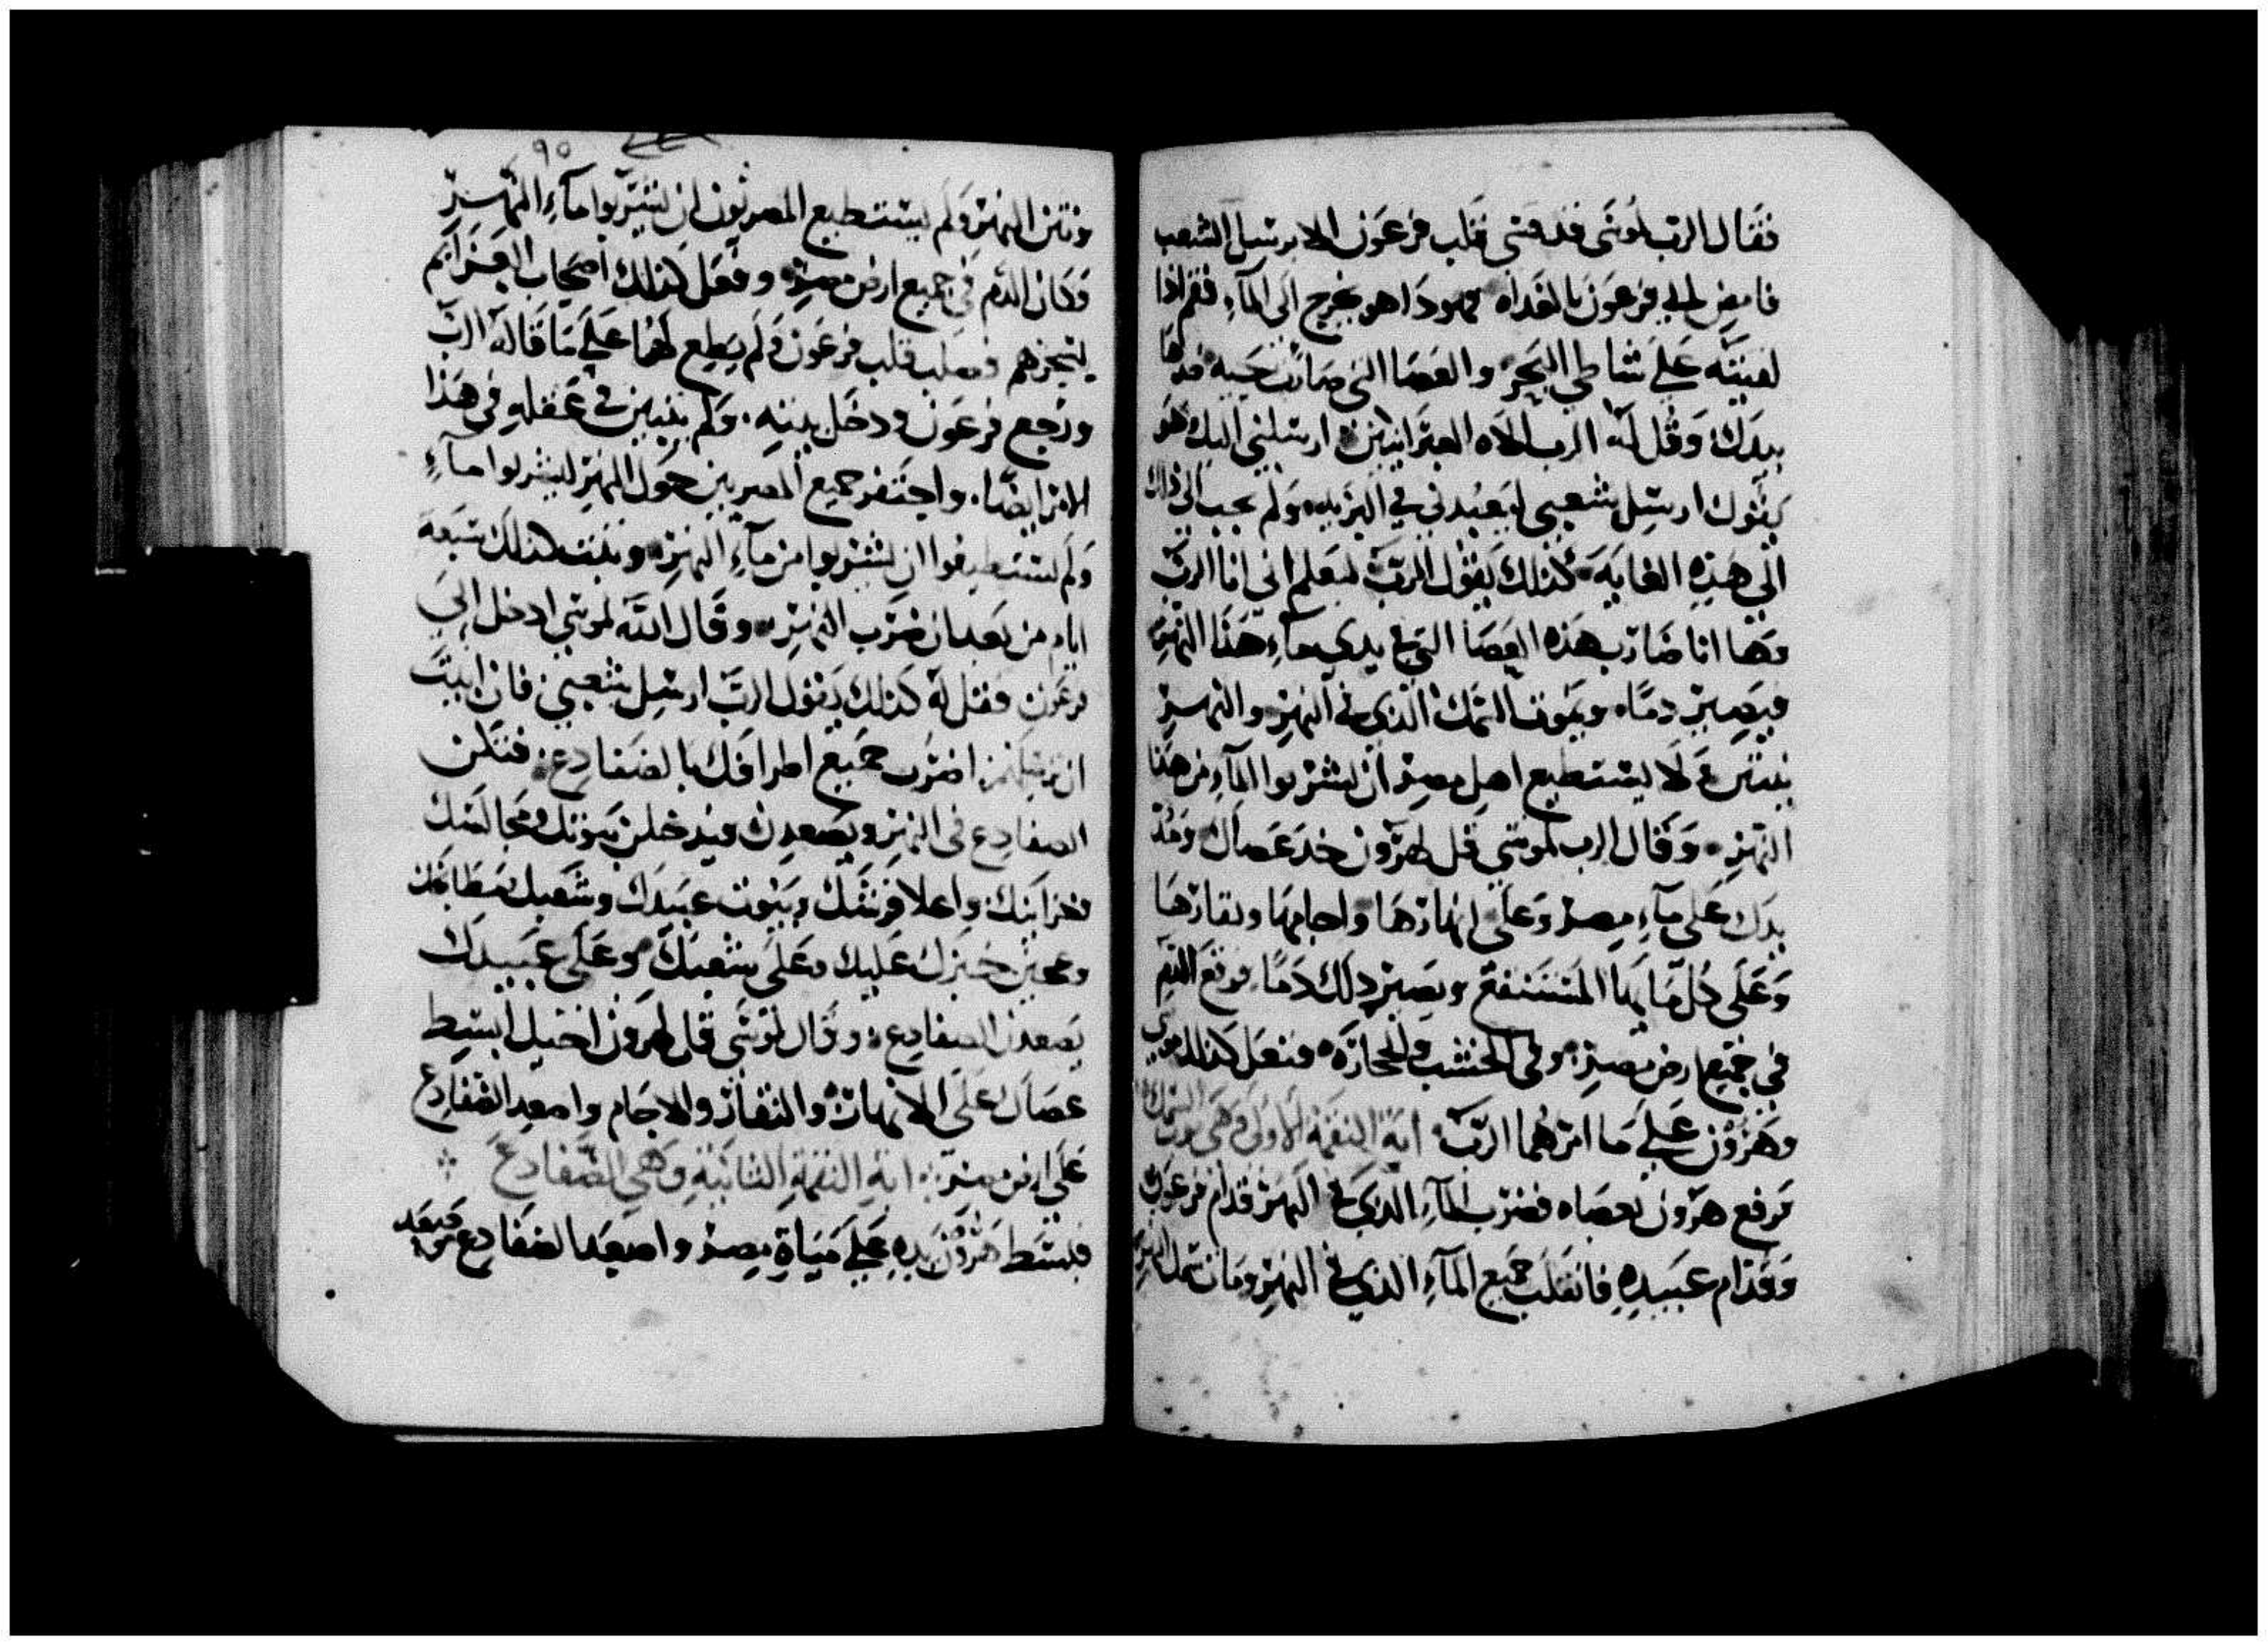 فقال الرب لموسى قد قسى قلب فرعون الا يرسل الشعب
فامض الى فرعون بالغداه فهوذا هو يخرج الى المآء فقم اذا
لقيته على شاطى البحر والعصا التى صارت حيه خدها
بيدك وقل له الرب الاه العبرانيين ارسلنى اليك وهو
يقول ارسل شعبى ليعبدنى في البريه ولم تجب الى ذلك
الى هذه الغايه كذلك يقول الرب لتعلم انى انا الرب
وها انا ضارب بهذه العصا التى في يدى مآء هذا النهر
فيصير دمًا ويموت السمك الذى في النهر والنهر
ينتن ولا يستطيع اهل مصر ان يشربوا المآء من هذا
النهر وقال الرب لموسى قل لهرون خد عصاك ومد
يدك على مآء مصر وعلى انهارها واجامها ونقارها
وعلى كل مايها المستنقع ويصير ذلك دمًا فوقع الدم
في جميع ارض مصر وفى الخشب والحجاره ففعل كذلك موسى
وهرون على ما امرهما الرب اية النقمه الاولى وهى
فرفع هرون بعصاه فضرب المآء الذى في النهر قدام فرعون
وقدام عبيده فانقلب جميع المآء الذي في النهر ومات سمك النهر
٩٥
ونتن النهر ولم يستطيع المصريون ان يشربوا مآء النهر
وكان الدم في جميع ارض مصر وفعل كذلك اصحاب العزايم
بسحرهم فصلب قلب فرعون ولم يطع لهما على ما قاله الرب
ورجع فرعون ودخل بيته ولم يتبين في عقله في هذا
الامر ايضًا واحتفر جميع المصريين حول النهر ليشربوا مآء
ولم يستطيعوا ان يشربوا من مآء النهر وتمت كذلك سبعة
ايام من بعد ان ضرب النهر وقال الله لموسى ادخل الى
فرعون فقل له كذلك يقول الرب ارسل شعبى فان ابيت
ان ترسلهم اضرب جميع اطرافك بالضفادع فتكثر
الضفادع فى النهر ويصعدن فيدخلن بيوتك ومجالسك
وخزاينك واعلا فرشك وبيوت عبيدك وشعبك
وعجين خبزك عليك وعلى شعبك وعلى عبيدك
يصعدن الضفادع وقال لموسى قل لهرون اخيك ابسط
عصاك على الانهار والنقار والاجام واصعد الضفادع
على ارض مصر اية النقمة الثانية وهى الضفادع
فبسط هرون يده على مياة مصر واصعد الضفادع فصعد